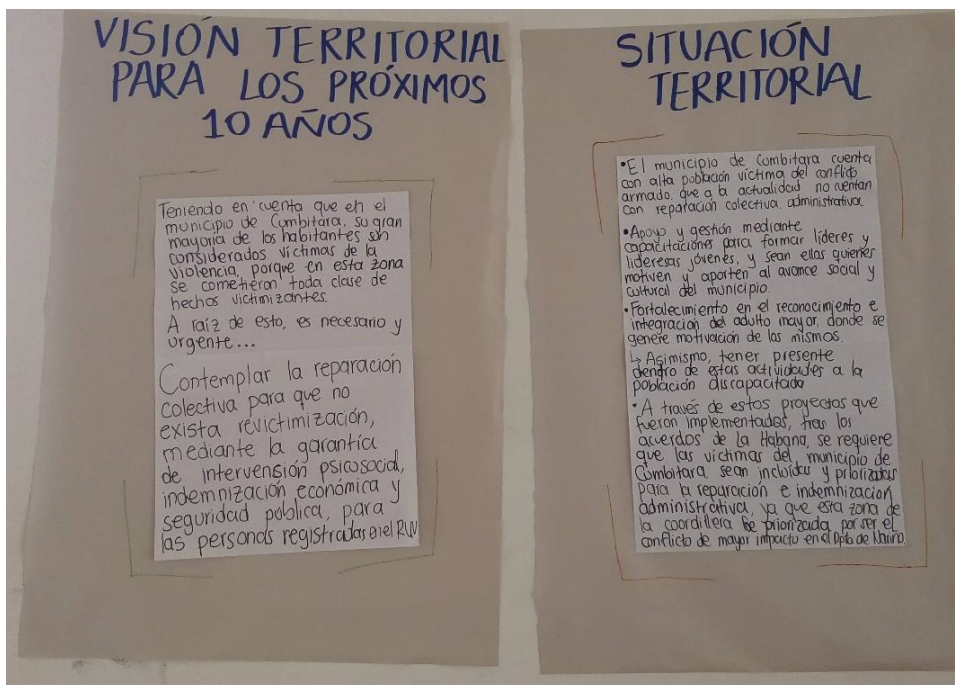 VISIÓN TERRITORIAL
PARA LOS PRÓXIMOS
10 AÑOS
Teniendo en cuenta que en el
municipio de Cumbitara, su gran
mayoría de los habitantes son
considerados víctimas de la
violencia, porque en esta zona
se cometieron toda clase de
hechos victimizantes.
A raíz de esto, es necesario y
urgente...
Contemplar la reparación
colectiva para que no
exista revictimización,
mediante la garantía
de intervensión psicosocial,
indemnización económica y
seguridad pública, para
las personas registradas en el RUV
SITUACIÓN
TERRITORIAL
•El municipio de Cumbitara cuenta
con alta población víctima del conflicto
armado, que a la actualidad no cuentan
con reparación colectiva, administrativa.
•Apoyo y gestión mediante
capacitaciones para formar líderes y
lideresas jóvenes, y sean ellos quienes
motiven y aporten al avance social y
cultural del municipio.
•Fortalecimiento en el reconocimiento e
integración del adulto mayor, donde se
genere motivación de los mismos.
↳ Asimismo, tener presente
dentro de estas actividades a la
población discapacitada
•A través de estos proyectos que
fueron implementados, tras los
acuerdos de La Habana, se requiere
que las víctimas del municipio de
Cumbitara, sean incluídas y priorizadas
para la reparación e indemnización
administrativa, ya que esta zona de
la coordillera fue priorizada, por ser el
conflicto de mayor impacto en el Dpto de Nariño.